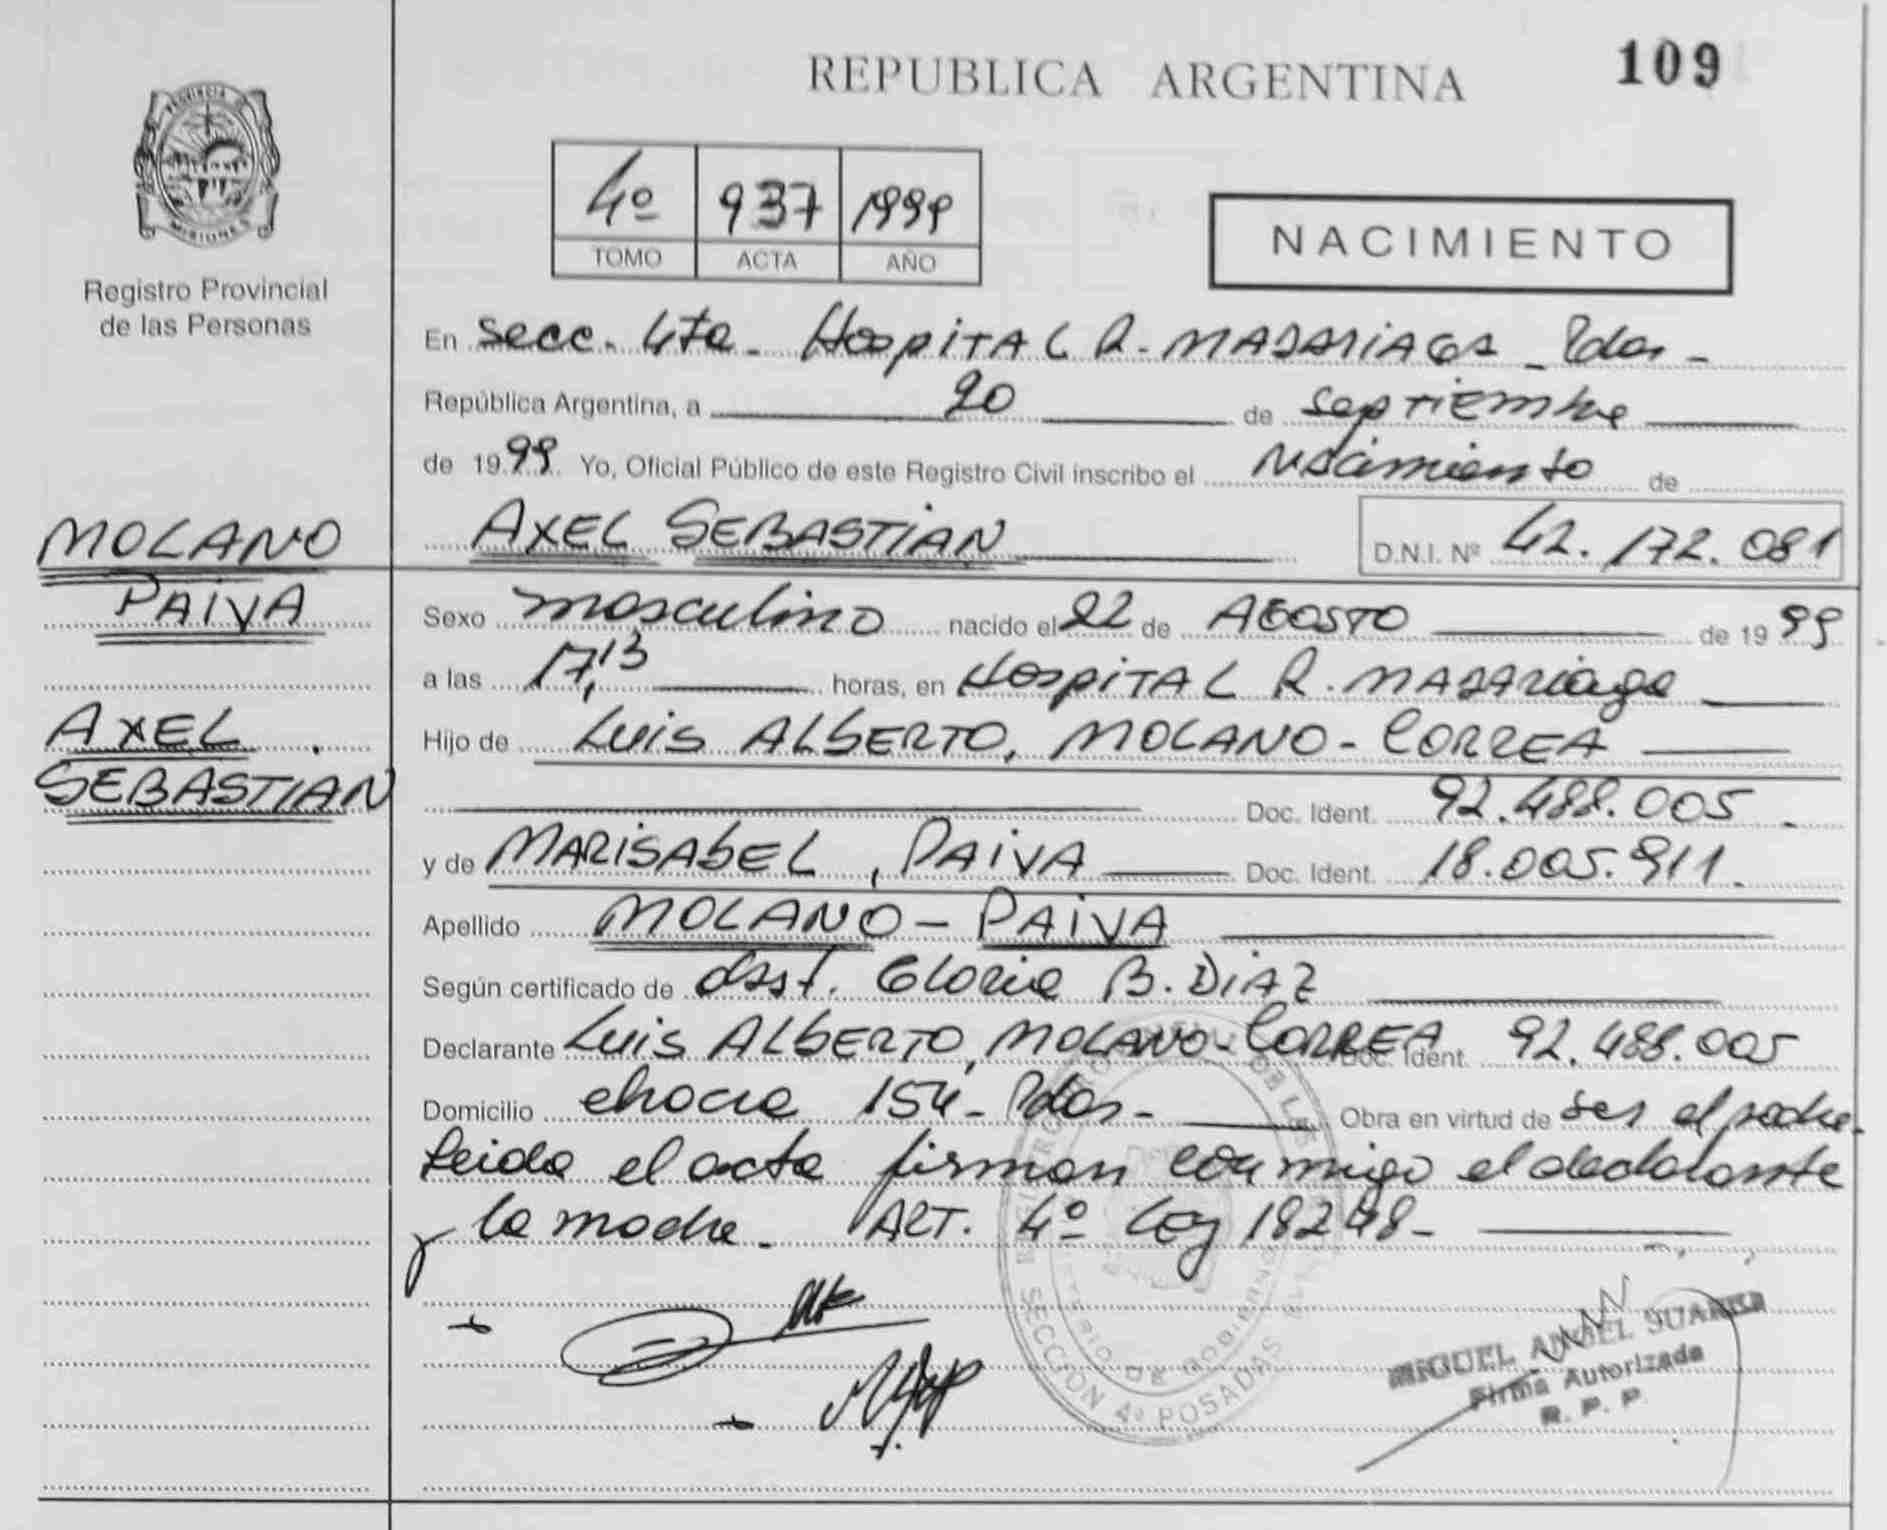 REPUBLICA ARGENTINA
109
PROVINCIA DE
MISIONES
Registro Provincial
de las Personas
4º 937 1999
TOMO ACTA AÑO
NACIMIENTO
En Secc. 4ta - Hospital R. MADARIAGA - Pdas -
República Argentina, a 20 de Septiembre
de 1999. Yo, Oficial Público de este Registro Civil inscribo el Nacimiento de
MOLANO
PAIVA
AXEL
SEBASTIAN
AXEL SEBASTIAN D.N.I. Nº 42.172.081
Sexo masculino nacido el 22 de AGOSTO de 1999
a las 17,13 horas, en Hospital R. MADARiaga
Hijo de Luis ALBERTO, MOLANO - CORREA
Doc. Ident. 92.488.005 -
y de MARISABEL, PAIVA Doc. Ident. 18.005.911.
Apellido MOLANO - PAIVA
Según certificado de Obst. Gloria B. DIAZ
Declarante Luis ALBERTO, MOLANO - CORREA Doc. Ident. 92.488.005
Domicilio 154 - Pdas - Obra en virtud de ser el padre.
Leida el acta firman conmigo el declarante
y la madre. ART. 4º Ley 18248 -
SECCION 4º POSADAS
MIGUEL ANGEL SUAREZ
Firma Autorizada
R. P. P.